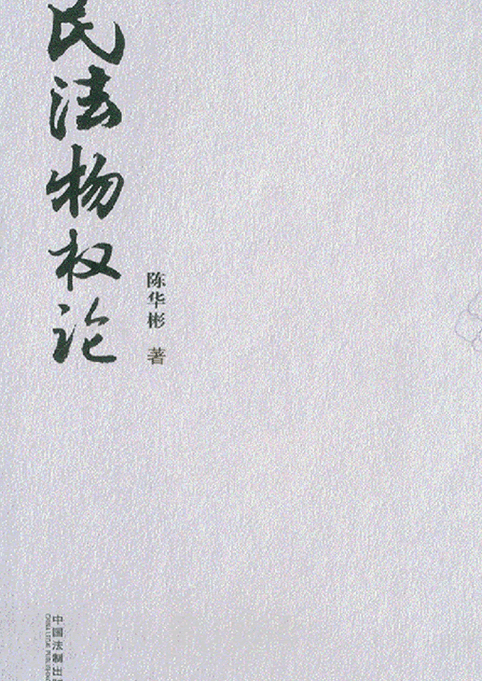 民法物权论
陈华彬 著
中国法制出
CHINA LEGAL PUBLISHING